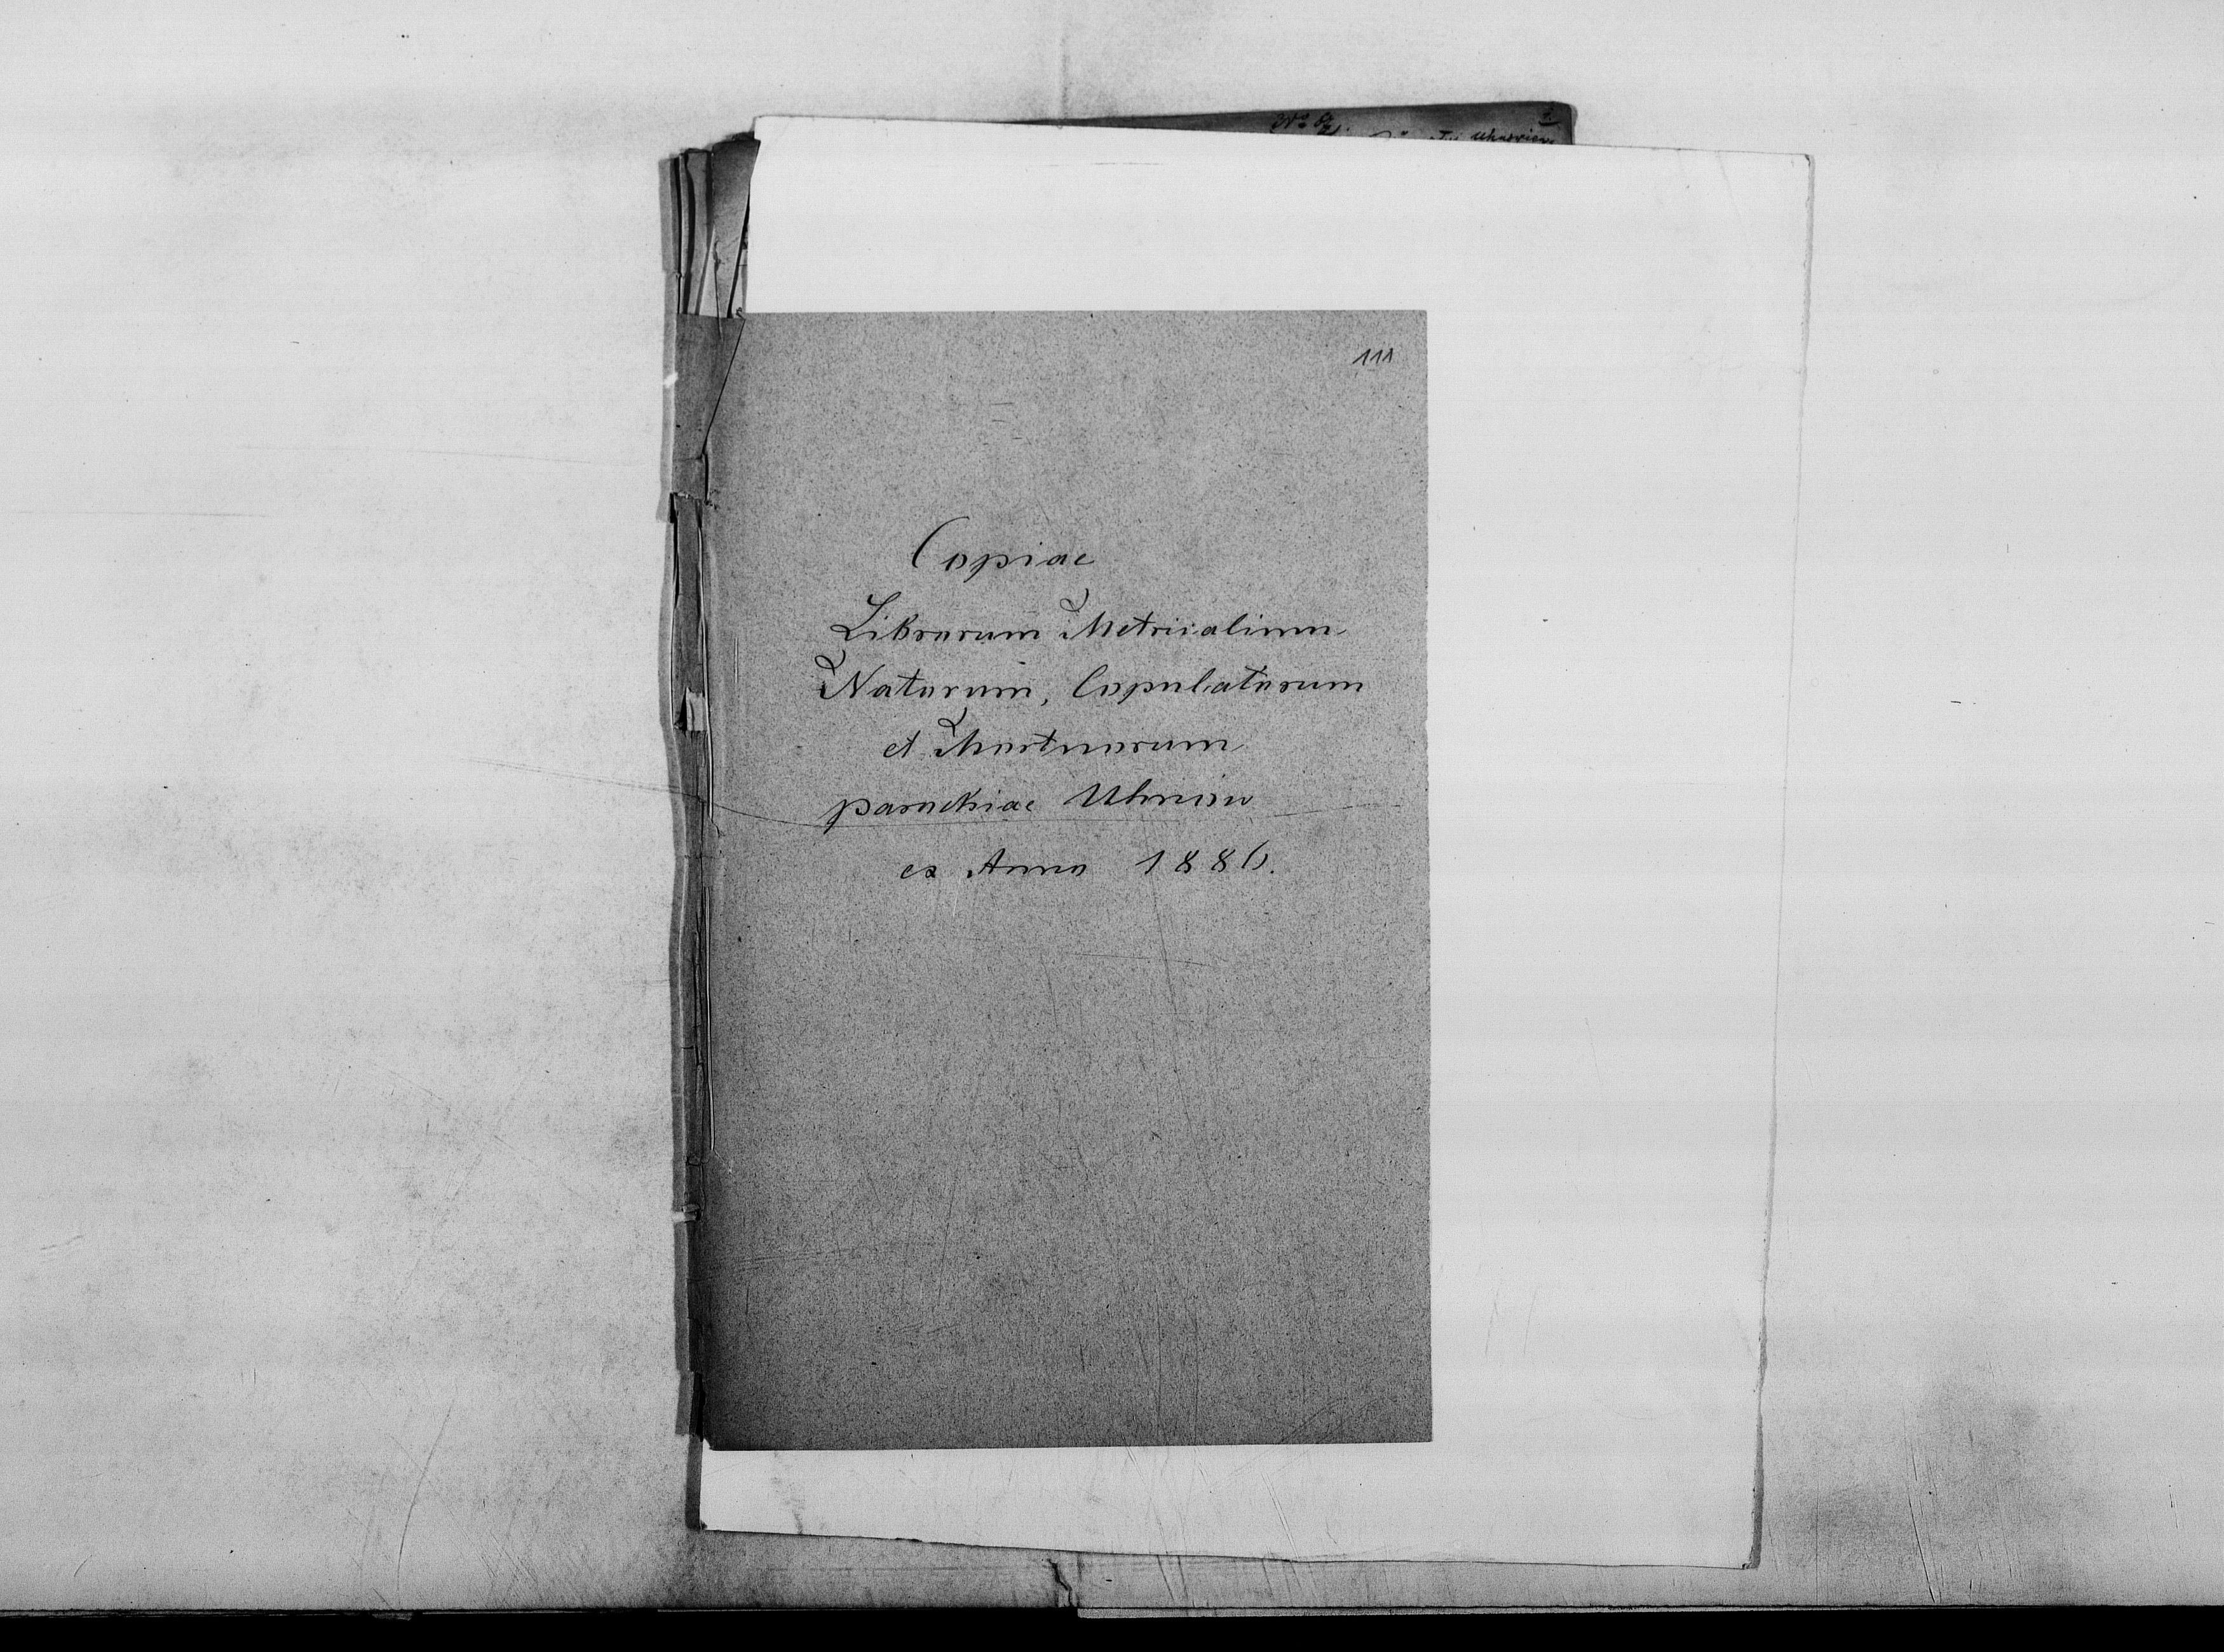 111
Copiae
Librorum Metricalium
Natorum, Copulatorum
et Mortuorum
parochiae Uhniów
ex Anno 1886.